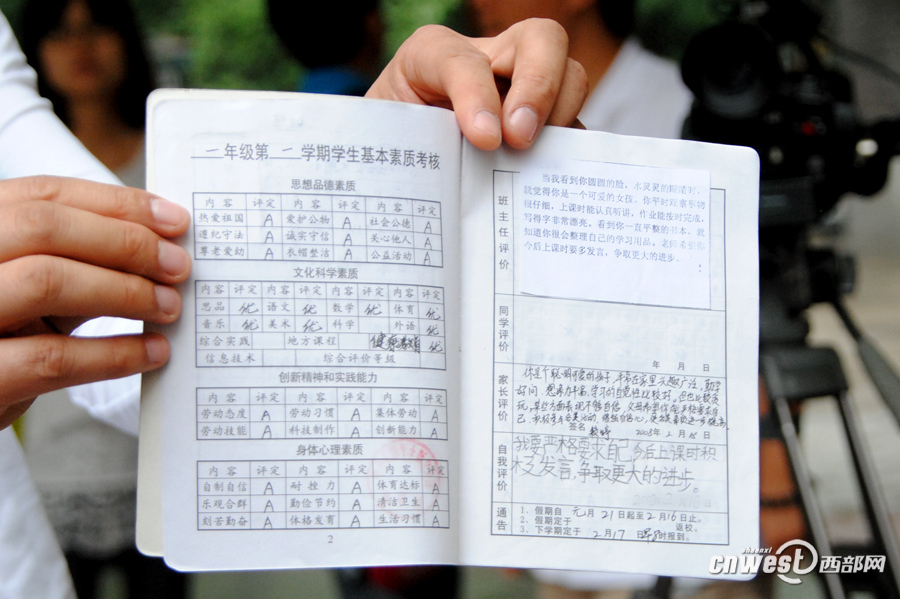 一年级第一学期学生基本素质考核
思想品德素质
内容 评定 内容 评定 内容 评定
热爱祖国 A 爱护公物 A 社会公德 A
遵纪守法 A 诚实守信 A 关心他人 A
尊老爱幼 A 衣帽整洁 A 公益活动 A
文化科学素质
内容 评定 内容 评定 内容 评定 内容 评定
思品 优 语文 优 数学 优 体育 优
音乐 优 美术 优 科学 外语 优
综合实践 地方课程 健康 优
信息技术 综合评价等级
创新精神和实践能力
内容 评定 内容 评定 内容 评定
劳动态度 A 劳动习惯 A 集体劳动 A
劳动技能 A 科技制作 A 创新能力 A
身体心理素质
内容 评定 内容 评定 内容 评定
自制自信 A 耐挫力 A 体育达标 A
乐观合群 A 勤俭节约 A 清洁卫生 A
刻苦勤奋 A 体格发育 A 生活习惯 A
2
班主任评价
当我看到你圆圆的脸，水灵灵的眼睛时，
就觉得你是一个可爱的女孩。你平时观察事物
很仔细，上课时能认真听讲，作业能按时完成，
写得字非常漂亮。看到你一直平整的书本，我
知道你很会整理自己的学习用品，老师希望你
今后上课时要多发言，争取更大的进步。
同学评价
年 月 日
家长评价
你是个聪明可爱的孩子，平常在家里兴趣广泛，勤学
好问，想象力丰富，学习的自觉性比较好。但也比较贪
玩，某些方面表现不够自信，
己
签名 2008年2月15日
自我评价
我要严格要求自己，今后上课时积
极发言，争取更大的进步。
通告
1、假期自 元月21日起至2月16日止。
2、假期定于 返校。
3、下学期定于 2月17日 早8时报到。
shaanxi
cnwest西部网
www.cnwest.com